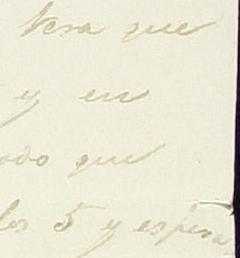 vera que
y en
odo que
los 5 y espera